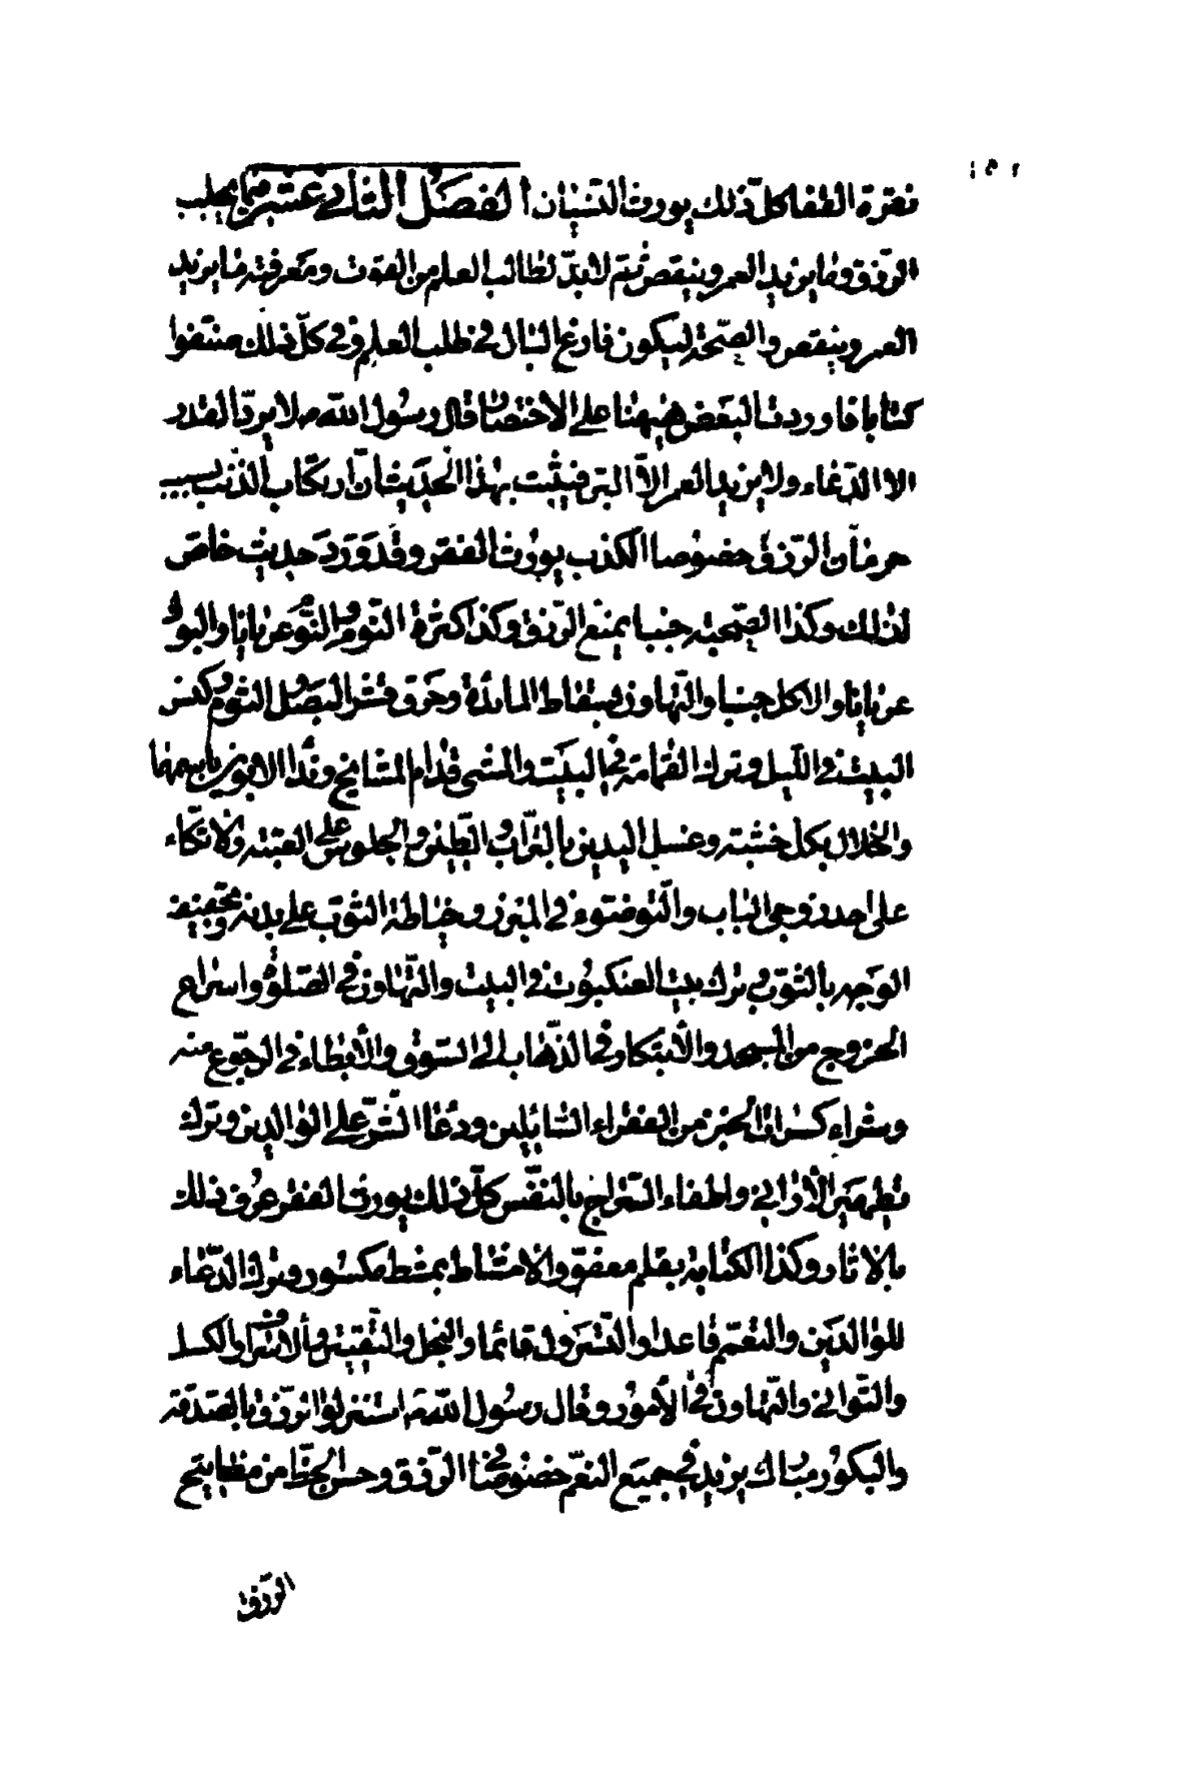 ١٥٢
نقرة القفا كل ذلك يورث النسيان الفصل الثاني عشر فيما يجلب
الرزق وما يزيد العمر وينقص ثم لا بدّ لطالب العلم من القوت ومعرفته ما يزيد
العمر وينقص والصحّة ليكون فارغ البال في طلب العلم وفي كلّ ذلك صنّفوا
كتابا فاوردت البعض هيهنا على الاختصار قال رسول الله ص لا يردّ القدر
الا الدّعاء ولا يزيد العمر الاّ البرّ فيثبت بهذا الحديث انّ ارتكاب الذنب بسبب
حرمان الرّزق خصوصا الكذب يورث الفقر وقد وَرَدَ حديث خاصّ
لذلك وكذا الصّحبته جنبا يمنع الرّزق وكذا كثرة النّوم والنّوم عريانا والبول
عريانا والاكل جنبا والتّهاون بسقاط المائدة وحرق قشر البصل والثوم وكنس
البيت في الليل وترك القمامة في البيت والمشى قدّام المشايخ ونداء الابوين باسمهما
والخلال بكل خشبته وغسل اليدين بالتراب والطين والجلوس على العتبته والاتّكاء
على احد زوجى الباب والتّوضّوء في المبرز وخياطة الثوب على بدنه وتجفيف
الوجه بالثوب وترك بيت العنكبوت في البيت والتّهاون في الصّلوة واسراع
الخروج من المسجد والأبتكار في الذّهاب الى السّوق والأبطاء في الرجوع منه
وشراء كسرات الخبز من الفقراء السّايلين ودعاء الشّرّ على الوالدين وترك
تطهير الأواني واطفاء السّراج بالنفس كلّ ذلك يورث الفقر عرف ذلك
بالاثار وكذا الكتابة بقلم معقود والامتشاط بمشط مكسور وترك الدّعاء
للوالدين والتعمّم قاعدا والتّسرول قائما والبخل والتّقتير والاسراف والكسل
والتّوانى والتّهاون في الأمور وقال رسول الله ص استنزلوا الرّزق بالصّدقة
والبكور مبارك يزيد في جميع النعم خصوصا في الرّزق وحسن الخطّ من مفاتيح
الرّزق